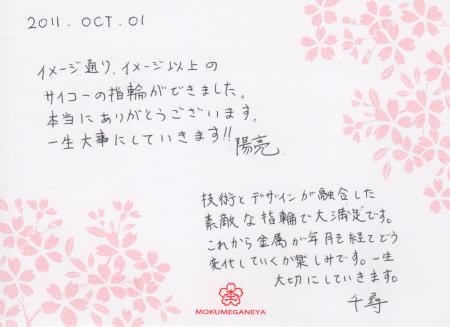 2011. OCT. 01
イメージ通り、イメージ以上の
サイコーの指輪ができました。
本当にありがとうございます。
一生大事にしていきます!!
陽亮
技術とデザインが融合した
素敵な指輪で大満足です。
これから金属が年月を経てどう
変化していくか楽しみです。一生
大切にしていきます。
千尋
MOKUMEGANEYA